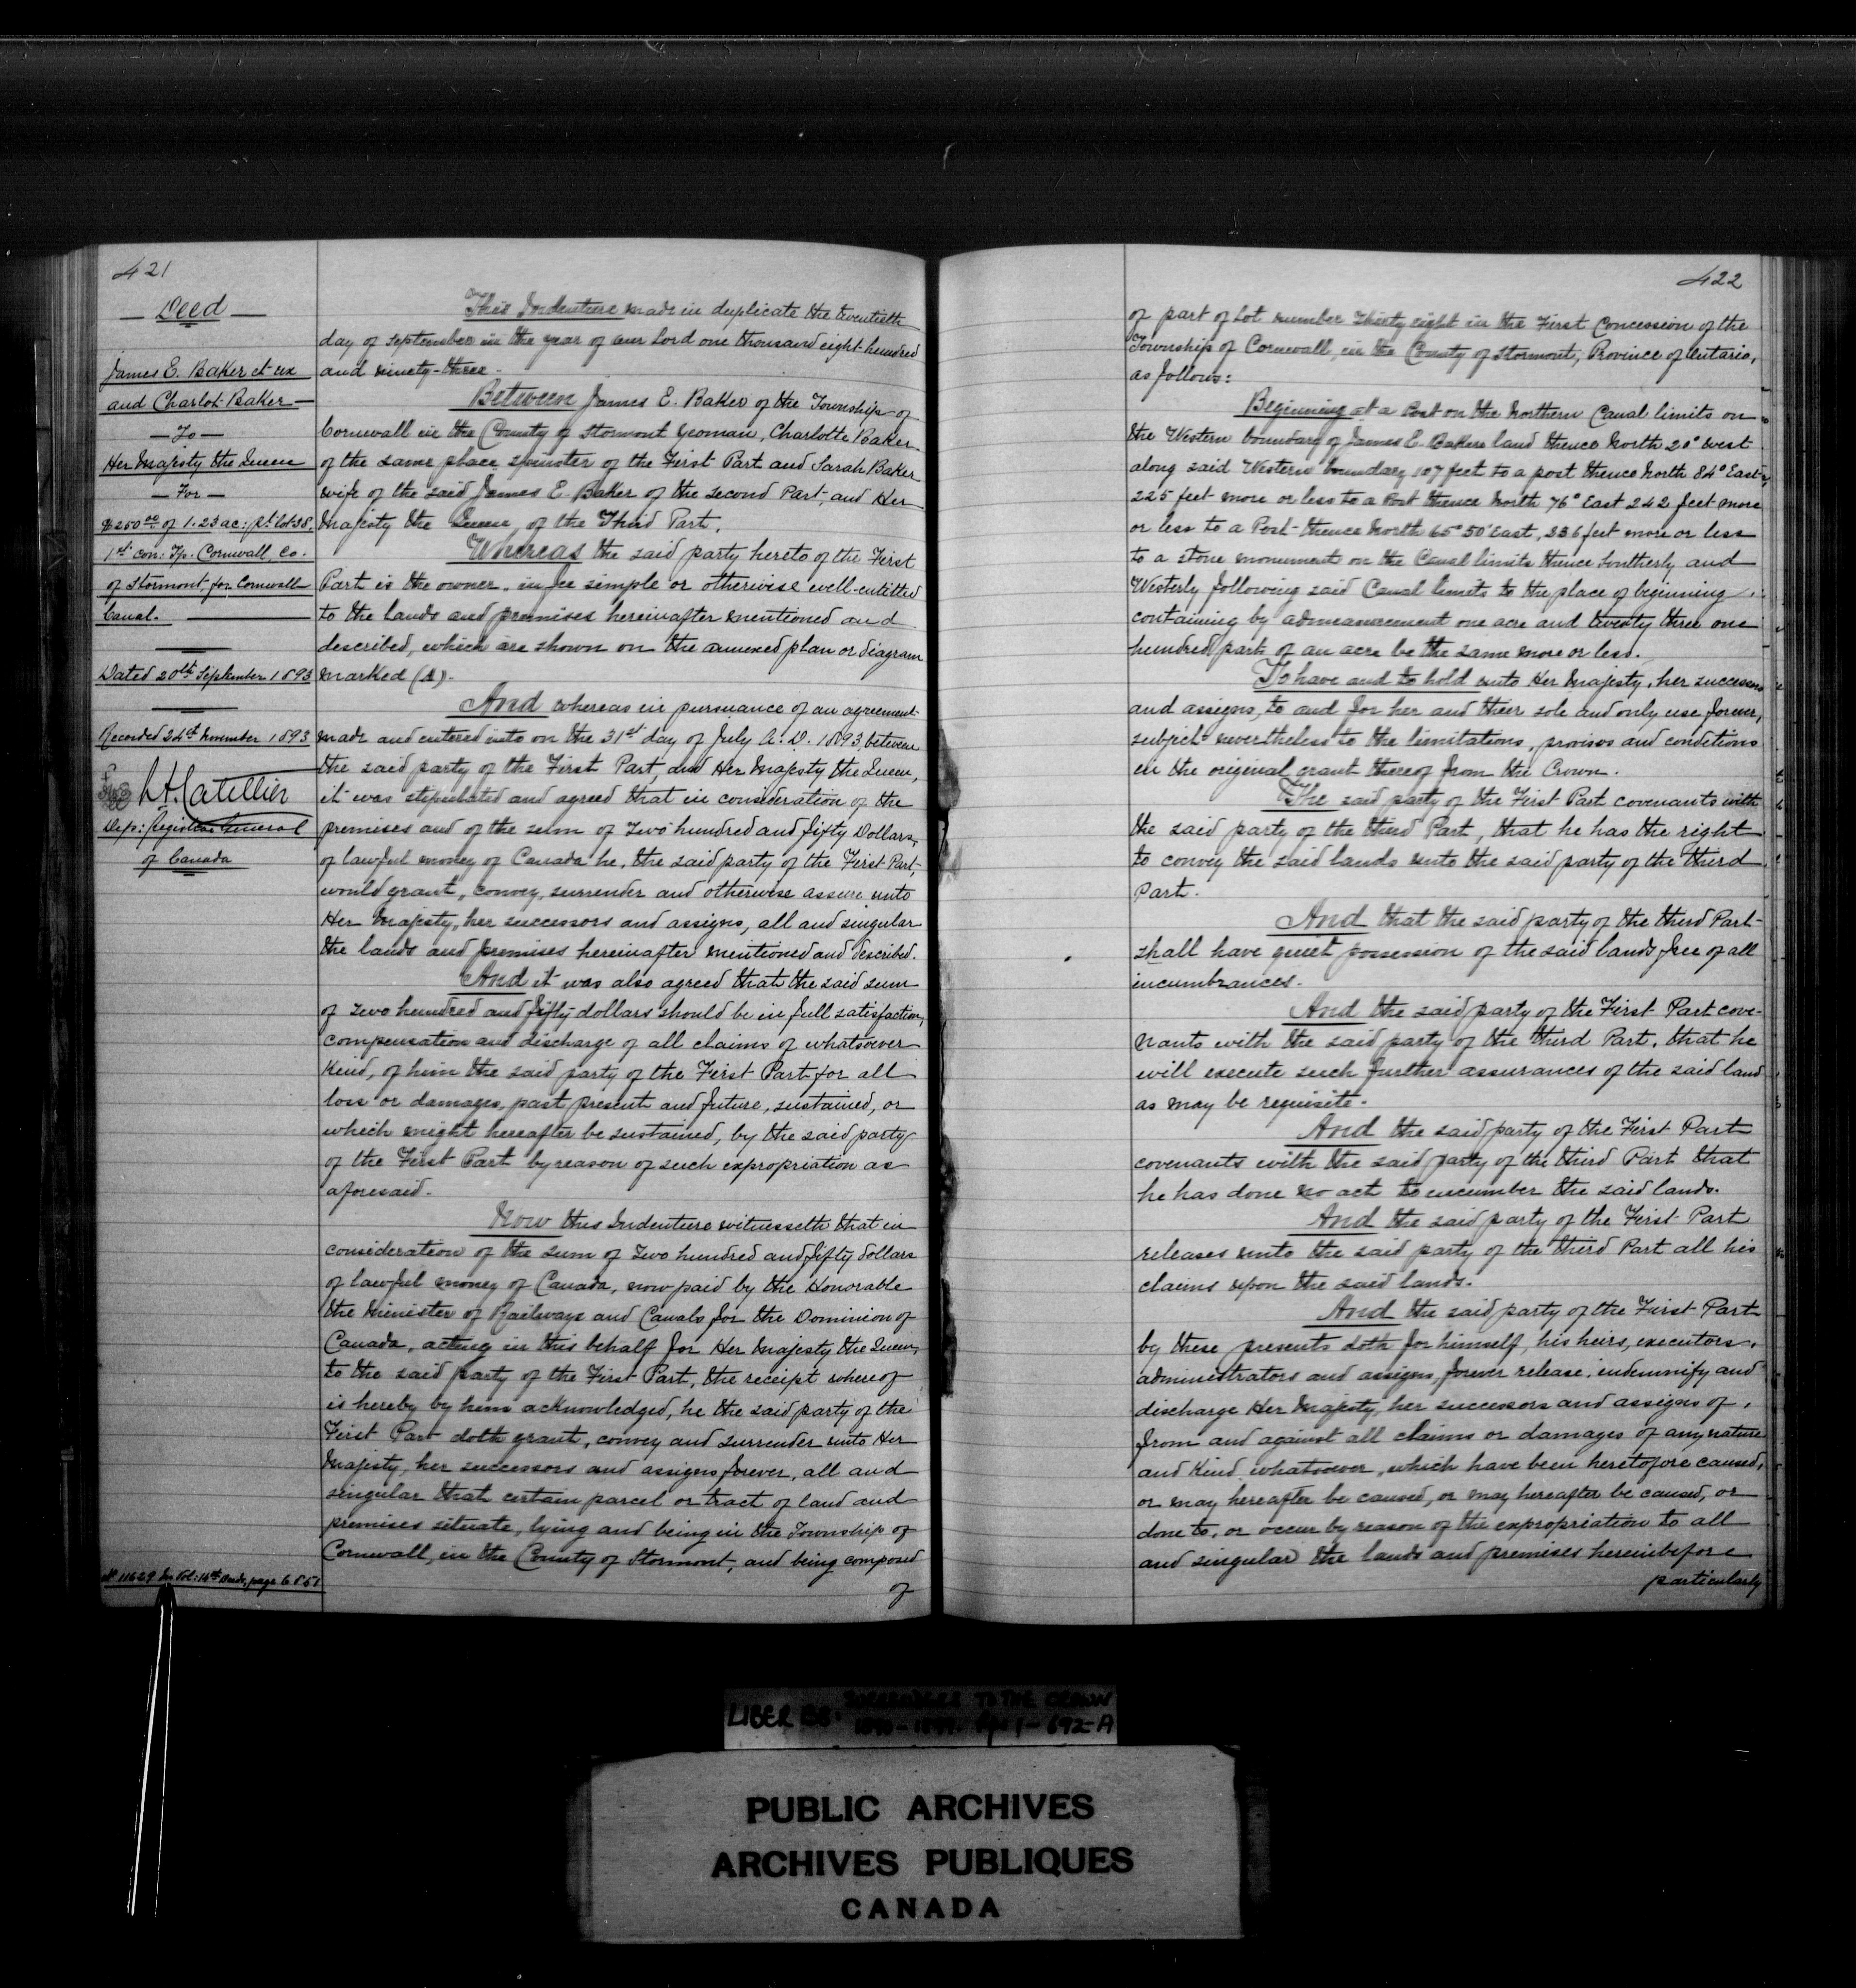 421
Deed
James E. Baker et ux
and Charlot Baker
To
Her Majesty the Queen
For
$250.00 of 1.23 ac: pt. Lot 38,
1st con: Tp. Cornwall, Co.
of Stormont, for Cornwall
Canal.
Dated 20th September 1893
Recorded 24th November 1893
Dep: Registrar General
of Canada
This Indenture made in duplicate the twentieth
day of September in the year of our Lord one thousand eight hundred
and ninety-three.
Between James E. Baker of the Township of
Cornwall in the County of Stormont Yeoman, Charlotte Baker
of the same place spinster of the First Part and Sarah Baker
wife of the said James E. Baker of the second Part, and Her
Majesty the Queen, of the Third Part.
Whereas the said party hereto of the First
Part is the owner, in fee simple or otherwise well-entitled
to the lands and premises hereinafter mentioned and
described, which are shown on the annexed plan or diagram
marked (A).
And whereas in pursuance of an agreement
made and entered into on the 31st day of July A.D. 1893 between
the said party of the First Part, and Her Majesty the Queen,
it was stipulated and agreed that in consideration of the
premises and of the sum of Two hundred and fifty Dollars,
of lawful money of Canada he, the said party of the First Part,
would grant, convey, surrender and otherwise assure unto
Her Majesty, her successors and assigns, all and singular
the lands and premises hereinafter mentioned and described.
And it was also agreed that the said sum
of Two hundred and fifty dollars should be in full satisfaction,
compensation and discharge of all claims of whatsoever
Kind, of him the said party of the First Part for all
loss or damages, past present and future, sustained, or
which might hereafter be sustained, by the said party
of the First Part by reason of such expropriation as
aforesaid.
Now this Indenture witnesseth that in
consideration of the sum of Two hundred and fifty dollars
of lawful money of Canada, now paid by the Honorable
the Minister of Railways and Canals for the Dominion of
Canada, acting in this behalf for Her Majesty the Queen,
to the said party of the First Part, the receipt whereof
is hereby by him acknowledged, he the said party of the
First Part doth grant, convey and surrender unto Her
Majesty, her successors and assigns forever, all and
singular that certain parcel or tract of land and
premises situate, lying and being in the Township of
Cornwall, in the County of Stormont, and being composed
of
No 11629 in Vol: 14th Deeds, page
422
of part of Lot number Thirty eight in the First Concession of the
Township of Cornwall, in the County of Stormont, Province of Ontario,
as follows:
Beginning at a Post on the Northern Canal limits on
the Western boundary of James E. Bakers land thence North 20° West
along said Western boundary 107 feet to a post thence North 84° East
225 feet more or less to a Post thence North 76° East 242 feet more
or less to a Post thence North 65° 50' East, 336 feet more or less
to a stone monument on the Canal limits thence Southerly and
Westerly following said Canal limits to the place of beginning,
containing by admeasurement one acre and twenty three one
hundred part of an acre be the same more or less.
To have and to hold unto Her Majesty, her successors
and assigns, to and for her and their sole and only use forever,
subject nevertheless to the limitations, provisos and conditions
in the original grant thereof from the Crown.
The said party of the First Part covenants with
the said party of the third Part, that he has the right
to convey the said lands unto the said party of the Third
Part.
And that the said party of the third Part
shall have quiet possession of the said lands free of all
incumbrances.
And the said party of the First Part cove-
nants with the said party of the third Part, that he
will execute such further assurances of the said land
as may be requisite.
And the said party of the First Part
covenants with the said party of the third Part that
he has done no act to encumber the said lands.
And the said party of the First Part
releases unto the said party of the third Part all his
claims upon the said lands.
And the said party of the First Part
by these presents doth for himself, his heirs, executors,
administrators and assigns, forever release, indemnify and
discharge Her Majesty, her successors and assigns of,
from and against all claims or damages of any nature
and Kind whatsoever, which have been heretofore caused,
or may hereafter be caused, or may hereafter be caused, or
done to, or occur by reason of the expropriation to all
and singular the lands and premises hereinbefore
particularly
LIBER SURRENDERS TO THE CROWN
1890-1899. Pgs 1-692-A
PUBLIC ARCHIVES
ARCHIVES PUBLIQUES
CANADA